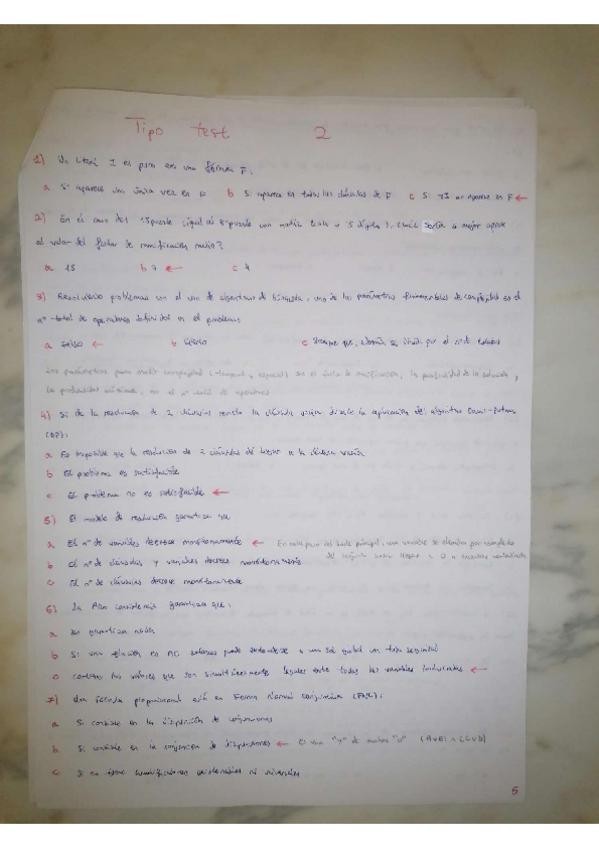 Tipo test 2
1) Un literal I es puro en una fórmula F:
a Si aparece una única vez en F b Si aparece en todas las cláusulas de F c Si ¬I no aparece en F ←
2) En el caso del
el valor del factor de ramificación medio?
a 15 b 7 ← c 4
3) Resolviendo problemas con el uso de algoritmos de búsqueda, uno de los parámetros fundamentales de complejidad es el
nº total de operadores definidos en el problema
a Falso ← b Cierto c Siempre que,
Los parámetros para medir complejidad (temporal y espacial) son el factor de ramificación, la profundidad de la solución y
la profundidad máxima, no el nº total de operadores
4) Si de la resolución de 2 cláusulas resulta la cláusula vacía durante la aplicación del algoritmo
(DP):
a Es imposible que la resolución de 2 cláusulas dé lugar a la cláusula vacía
b El problema es satisfacible
c El problema no es satisfacible ←
5) El modelo de resolución garantiza que
a El nº de variables decrece monótonamente ← En cada paso del bucle principal, una variable se elimina por completo
del
b El nº de cláusulas y variables decrece monótonamente
c El nº de cláusulas decrece monótonamente
6) La Arco consistencia garantiza que:
a No garantiza nada
b Si una relación es AC entonces puede extenderse a una sol global
c los valores que son simultáneamente legales entre todas las variables involucradas ←
7) Una fórmula proposicional está en Forma Normal conjuntiva (FNC):
a Si consiste en la disyunción de conjunciones
b Si consiste en la conjunción de disyunciones ← Es una "y" de muchas "o" (AvB) ∧ (CvD)
c Si no tiene cuantificadores existenciales ni universales
5